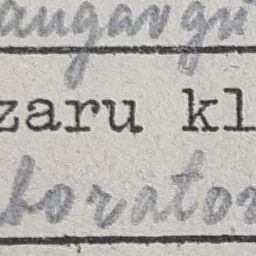 augavgri
zaru kl
borator